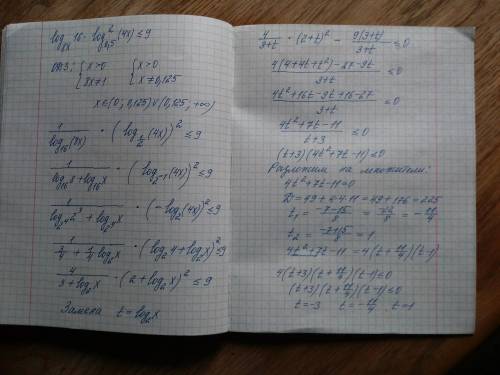 log₈ₓ 16 · log²₀,₅ (4x) ≤ 9
ОДЗ: { x>0 { x>0
8x≠1 x≠0,125
x∈(0; 0,125)∪(0,125; +∞)
1/log₁₆(8x) · (log_{1/2}(4x))² ≤ 9
1/(log₁₆8+log₁₆x) · (log_{2⁻¹}(4x))² ≤ 9
1/(log_{2⁴}2³ + log_{2⁴}x) · (-log₂(4x))² ≤ 9
1/(3/4 + 1/4 log₂x) · (log₂4+log₂x)² ≤ 9
4/(3+log₂x) · (2+log₂x)² ≤ 9
Замена t = log₂x
4/(3+t) · (2+t)² - 9(3+t)/(3+t) ≤ 0
(4(4+4t+t²)-27-9t)/(3+t) ≤ 0
(4t²+16t-9t+16-27)/(3+t) ≤ 0
(4t²+7t-11)/(t+3) ≤ 0
(t+3)(4t²+7t-11) ≤ 0
Разложим на множители:
4t²+7t-11=0
D=49+4·4·11=49+176=225
t₁ = (-7-15)/8 = -22/8 = -11/4
t₂ = (-7+15)/8 = 1
4t²+7t-11 = 4(t+11/4)(t-1)
4(t+3)(t+11/4)(t-1) ≤ 0
(t+3)(t+11/4)(t-1) ≤ 0
t=-3 t=-11/4 t=1